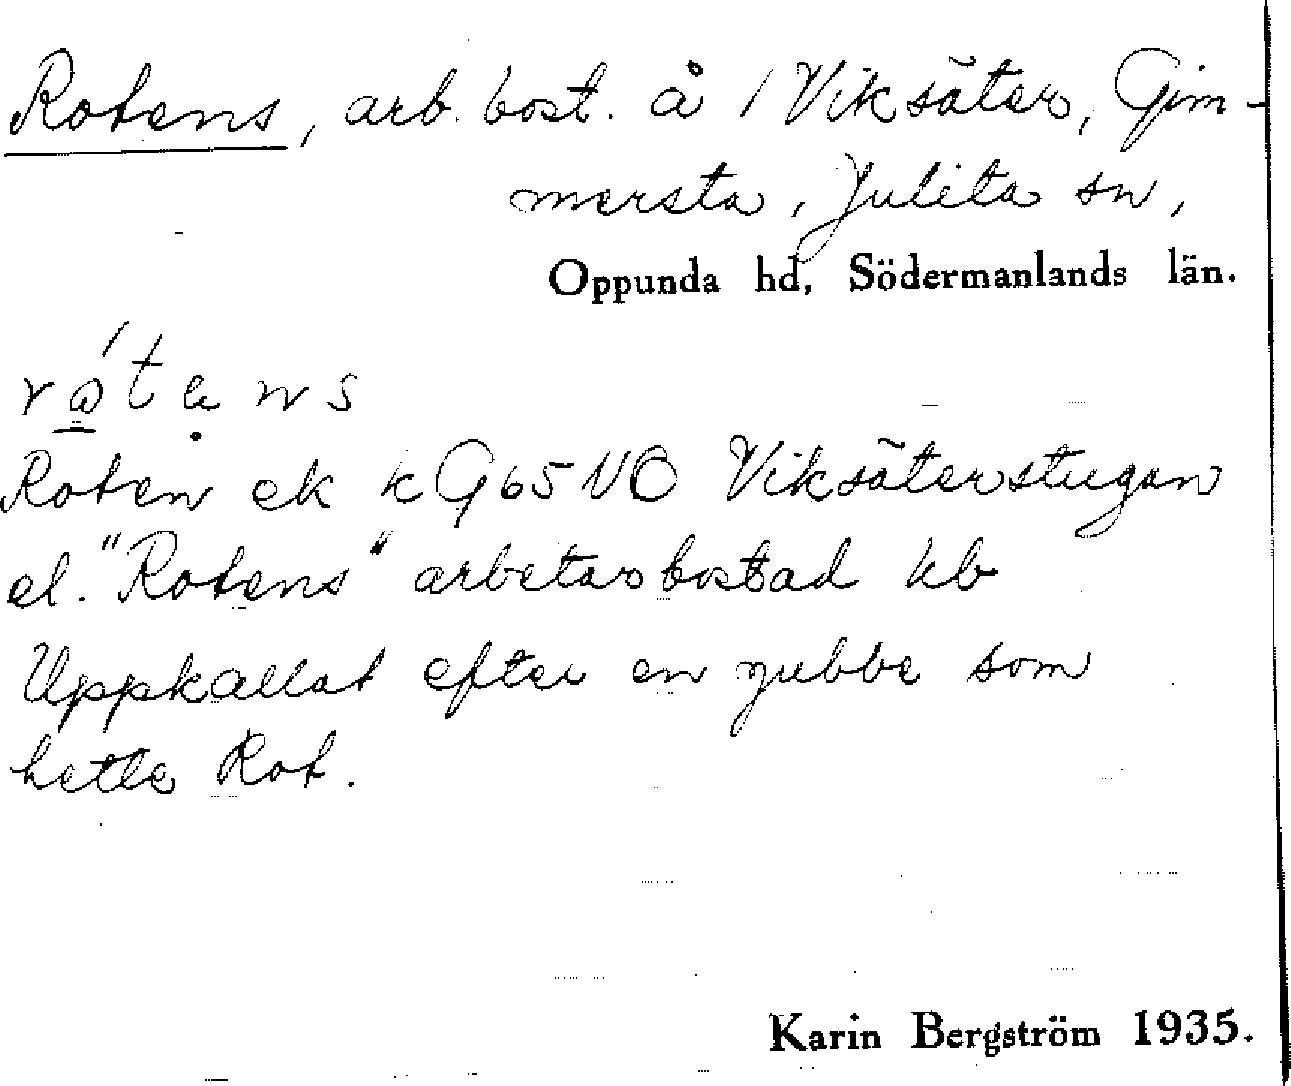 Rotens, arb. bost. å 1 Viksäter, Gim-
mersta, Julita sn,
Oppunda hd, Södermanlands län.
Roten ek kG65NO Viksäterstugan
el. "Rotens" arbetarbostad kb
Uppkallat efter en gubbe som
hette Rot.
Karin Bergström 1935.